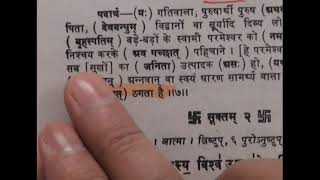 पदार्थ—(यः) गतिवाला, पुरुषार्थी पुरुष (अथ
पिता, (देवबन्धुम्) विद्वानों वा सूर्यादि दिव्य लो
(बृहस्पतिम्) बड़े-बड़ों के स्वामी परमेश्वर को (नम
निश्चय करके (अव गच्छात्) पहिचाने। [हे परमेश्व
सब [सुखों] का (जनिता) उत्पादक (असः) हो, (
अन्नवान् वा स्वयं धारण सामर्थ्य वाला
ठगता है ॥७॥
सूक्तम् २
आत्मा। त्रिष्टुप्, ६ पुरोऽनुष्टुप्
विश्वं